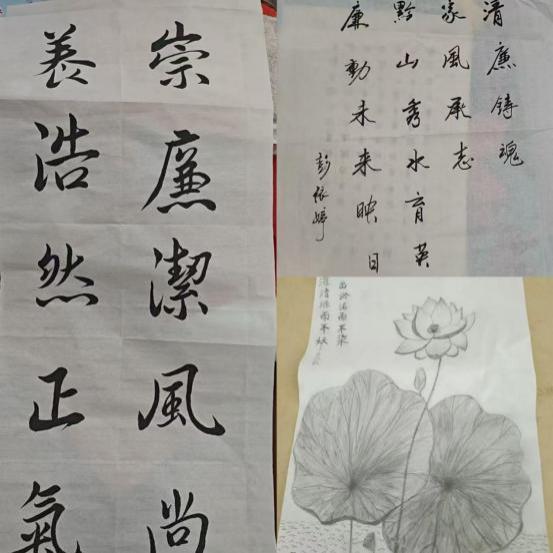 崇廉潔風尚
養浩然正氣
清廉铸魂
家風承志
黔山秀水育英
廉動未来映日
彭依婷
出淤泥而不染
濯清涟而不妖